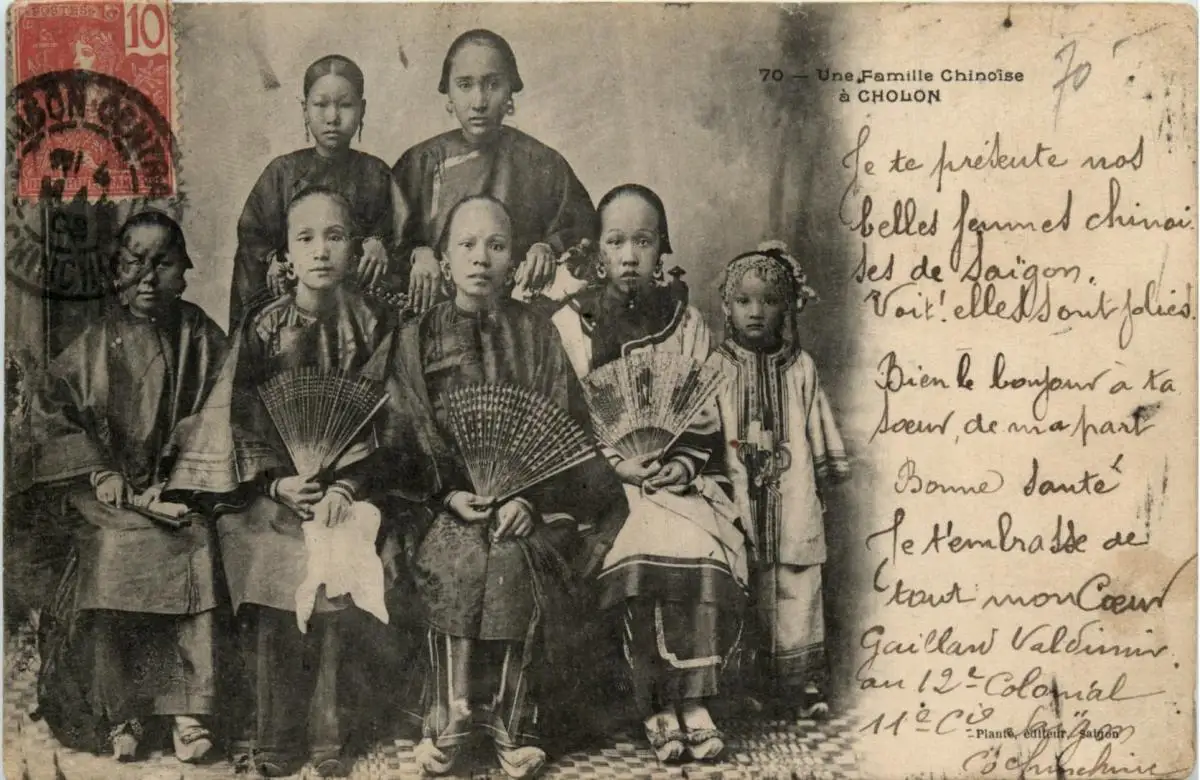 POSTES
10
70 — Une Famille Chinoise
à CHOLON
70
Je te présente nos
belles femmes chinoi
ses de Saïgon.
Voit! elles sont jolies.
Bien le bonjour à ta
sœur, de ma part
Bonne Santé
Je t'embrasse de
tout mon Cœur
Gaillard Valdimir.
au 12e Colonial
11e Cie Saïgon
Planté, éditeur, Saigon
Cochinchine